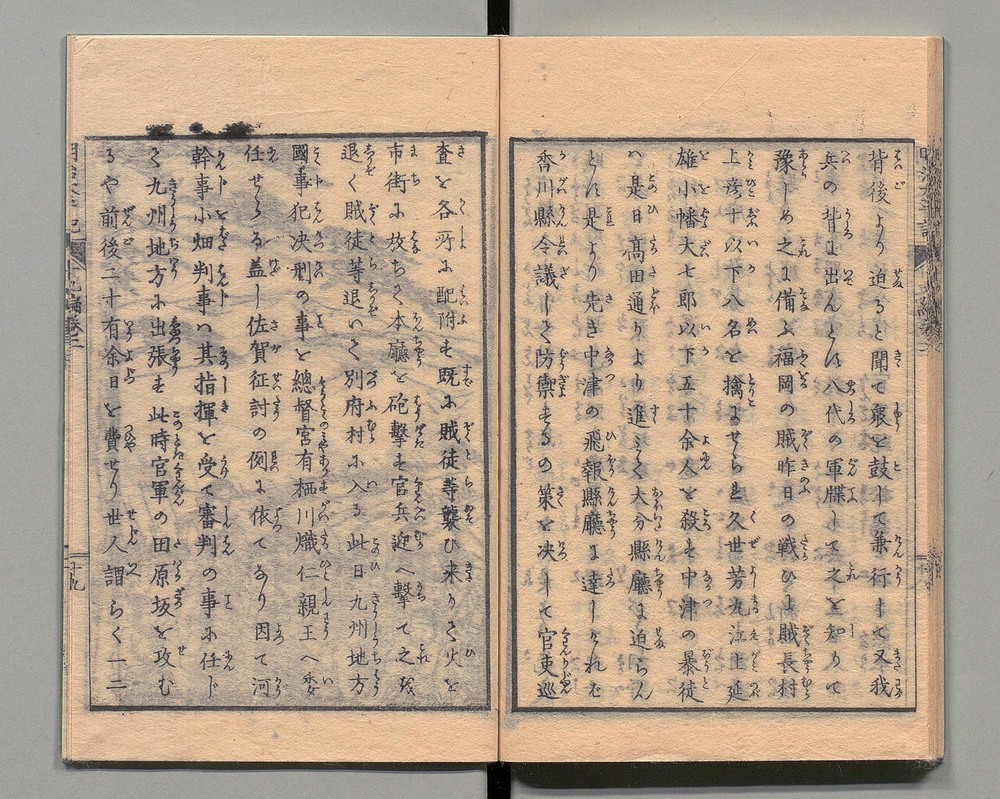 背後より迫ると聞て衆を鼓して兼行して又我
兵の背に出んとは八代の軍牒して之を知りて
豫しめ之に備ふ福岡の賊昨日の戦ひに賊長村
上彦十以下八名を擒にせられ久世芳丸江上延
雄小幡大七郎以下五十余人を殺す中津の暴徒
ハ是日高田通りより進ミて大分縣廳に迫らん
とに是より先き中津の飛報縣廳に達しければ
香川縣令議して防禦するの策を决して官吏巡
査を各所に配附す既に賊徒等襲ひ来りて火を
市街に放ちて本廳を砲撃す官兵迎へ撃て之を
退く賊徒等退いて別府村に入る此日九州地方
國事犯决刑の事を總督宮有栖川熾仁親王へ委
任せらる蓋し佐賀征討の例に依てなり因て河
幹事小畑判事ハ其指揮を受て審判の事に任じ
て九州地方に出張す此時官軍の田原坂を攻む
るや前後二十有余日を費せり世人謂らく一二
明治太平記
十九編巻之二
十九